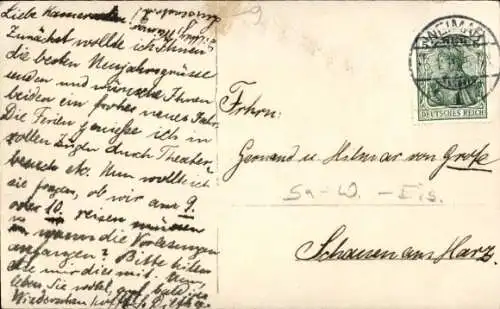 Liebe Kameraden!
Zunächst wollte ich Ihnen
die besten Neujahrsgrüsse
senden und wünsche Ihnen
beiden ein frohes neues Jahr.
Die Ferien genieße ich in
vollen Zügen durch Theater-
besuch etc. Nun wollte ich
sie fragen, ob wir am 9.
oder 10. reisen müssen
wann die Vorlesungen
anfangen? Bitte teilen
Sie mir dies mit. Nun,
leben Sie wohl, auf baldiges
Wiedersehen
WEIMAR
DEUTSCHES REICH
Frhrn:
Gernand u. Hilmar von Grote
Sa-W. - Eis.
Schauen am Harz.